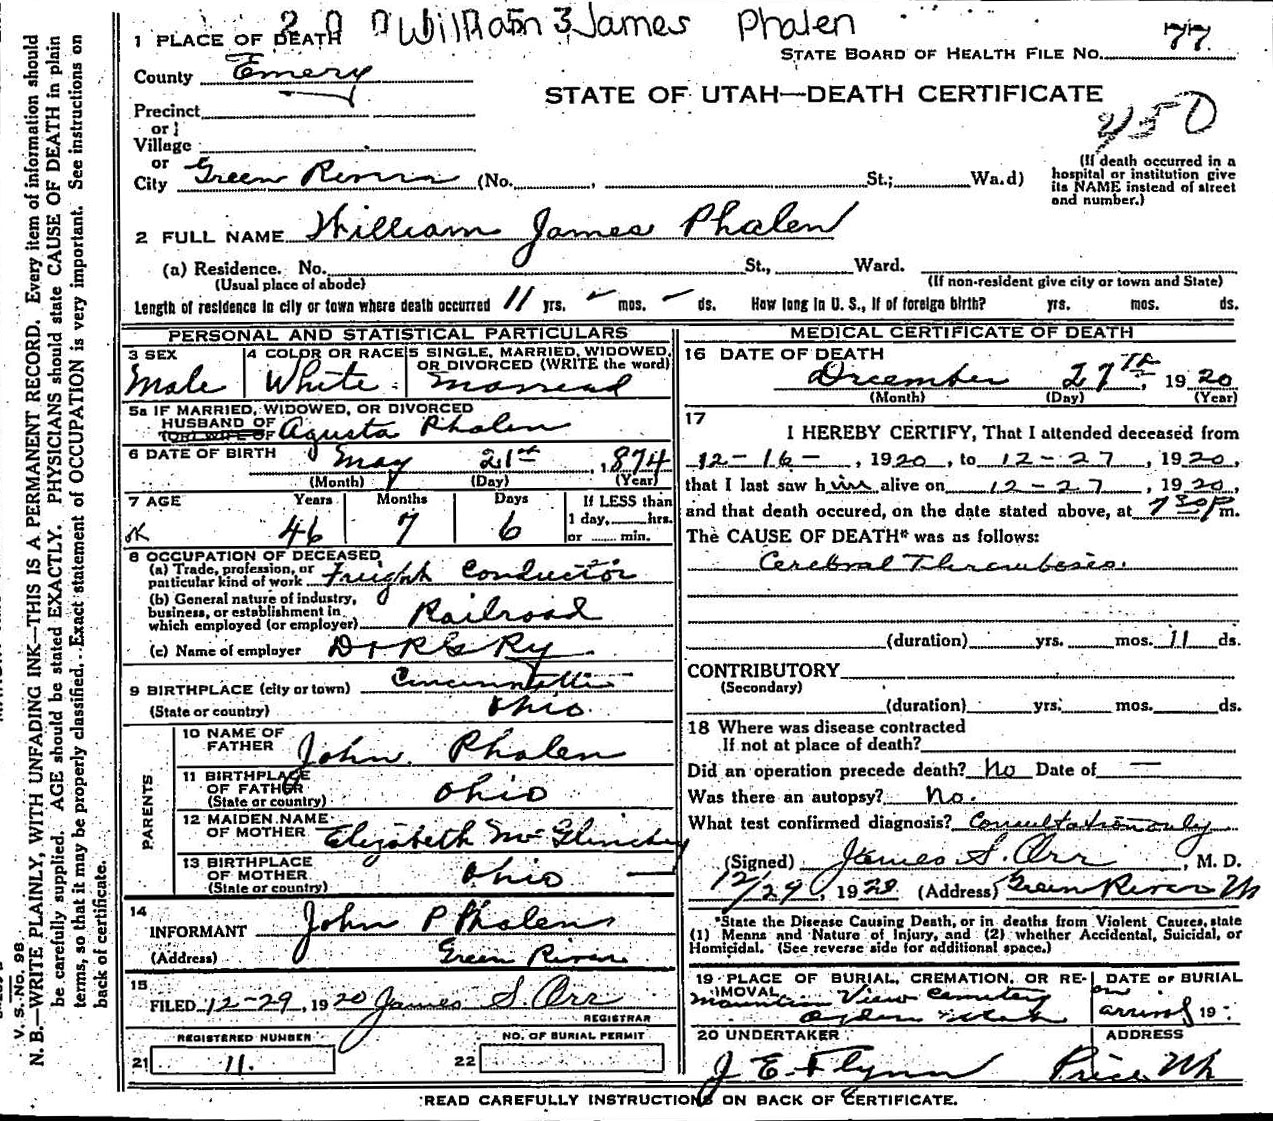 William James Phalen
1 PLACE OF DEATH
STATE BOARD OF HEALTH FILE No. 77
County Emery
STATE OF UTAH—DEATH CERTIFICATE
Precinct
or
Village
or
City Green River (No. , St.; Wa.d)
(If death occurred in a
hospital or institution give
its NAME instead of street
and number.)
2 FULL NAME William James Phalen
(a) Residence. No. St., Ward.
(Usual place of abode) (If non-resident give city or town and State)
Length of residence in city or town where death occurred 11 yrs. mos. ds. How long in U. S., if of foreign birth? yrs. mos. ds.
PERSONAL AND STATISTICAL PARTICULARS
3 SEX 4 COLOR OR RACE 5 SINGLE, MARRIED, WIDOWED,
OR DIVORCED (WRITE the word)
Male White Married
5a IF MARRIED, WIDOWED, OR DIVORCED
HUSBAND OF Agusta Phalen
(OR) WIFE OF
6 DATE OF BIRTH May 21st, 1874
(Month) (Day) (Year)
7 AGE Years Months Days If LESS than
46 7 6 1 day, hrs.
or min.
8 OCCUPATION OF DECEASED
(a) Trade, profession, or
particular kind of work Freight Conductor
(b) General nature of industry,
business, or establishment in
which employed (or employer) Railroad
(c) Name of employer D + R G Ry
9 BIRTHPLACE (city or town)
(State or country) Ohio
PARENTS
10 NAME OF
FATHER John Phalen
11 BIRTHPLACE
OF FATHER
(State or country) Ohio
12 MAIDEN NAME
OF MOTHER Elizabeth McGlinchey
13 BIRTHPLACE
OF MOTHER
(State or country) Ohio
14
INFORMANT John P Phalen
(Address) Green River
15
FILED 12-29, 1920 James S. Orr
REGISTRAR
REGISTERED NUMBER NO. OF BURIAL PERMIT
21 11. 22
MEDICAL CERTIFICATE OF DEATH
16 DATE OF DEATH
December 27th, 1920
(Month) (Day) (Year)
17
I HEREBY CERTIFY, That I attended deceased from
12-16-, 1920, to 12-27, 1920,
that I last saw him alive on 12-27, 1920,
and that death occured, on the date stated above, at 7 30 P m.
The CAUSE OF DEATH* was as follows:
Cerebral Thrombosis.
(duration) yrs. mos. 11 ds.
CONTRIBUTORY
(Secondary)
(duration) yrs. mos. ds.
18 Where was disease contracted
If not at place of death?
Did an operation precede death? No Date of —
Was there an autopsy? No.
What test confirmed diagnosis? Consultation only
(Signed) James S. Orr, M. D.
12/29, 1920 (Address) Green River Uh
*State the Disease Causing Death, or in deaths from Violent Causes, state
(1) Means and Nature of Injury, and (2) whether Accidental, Suicidal, or
Homicidal. (See reverse side for additional space.)
19 PLACE OF BURIAL, CREMATION, OR RE- DATE OF BURIAL
MOVAL on
Mountain View Cemetery
Ogden Utah arrival 19
20 UNDERTAKER ADDRESS
J E Flynn Price Uh
READ CAREFULLY INSTRUCTIONS ON BACK OF CERTIFICATE.
V. S. No. 98
N. B.—WRITE PLAINLY, WITH UNFADING INK—THIS IS A PERMANENT RECORD. Every item of information should
be carefully supplied. AGE should be stated EXACTLY. PHYSICIANS should state CAUSE OF DEATH in plain
terms, so that it may be properly classified. Exact statement of OCCUPATION is very important. See instructions on
back of certificate.